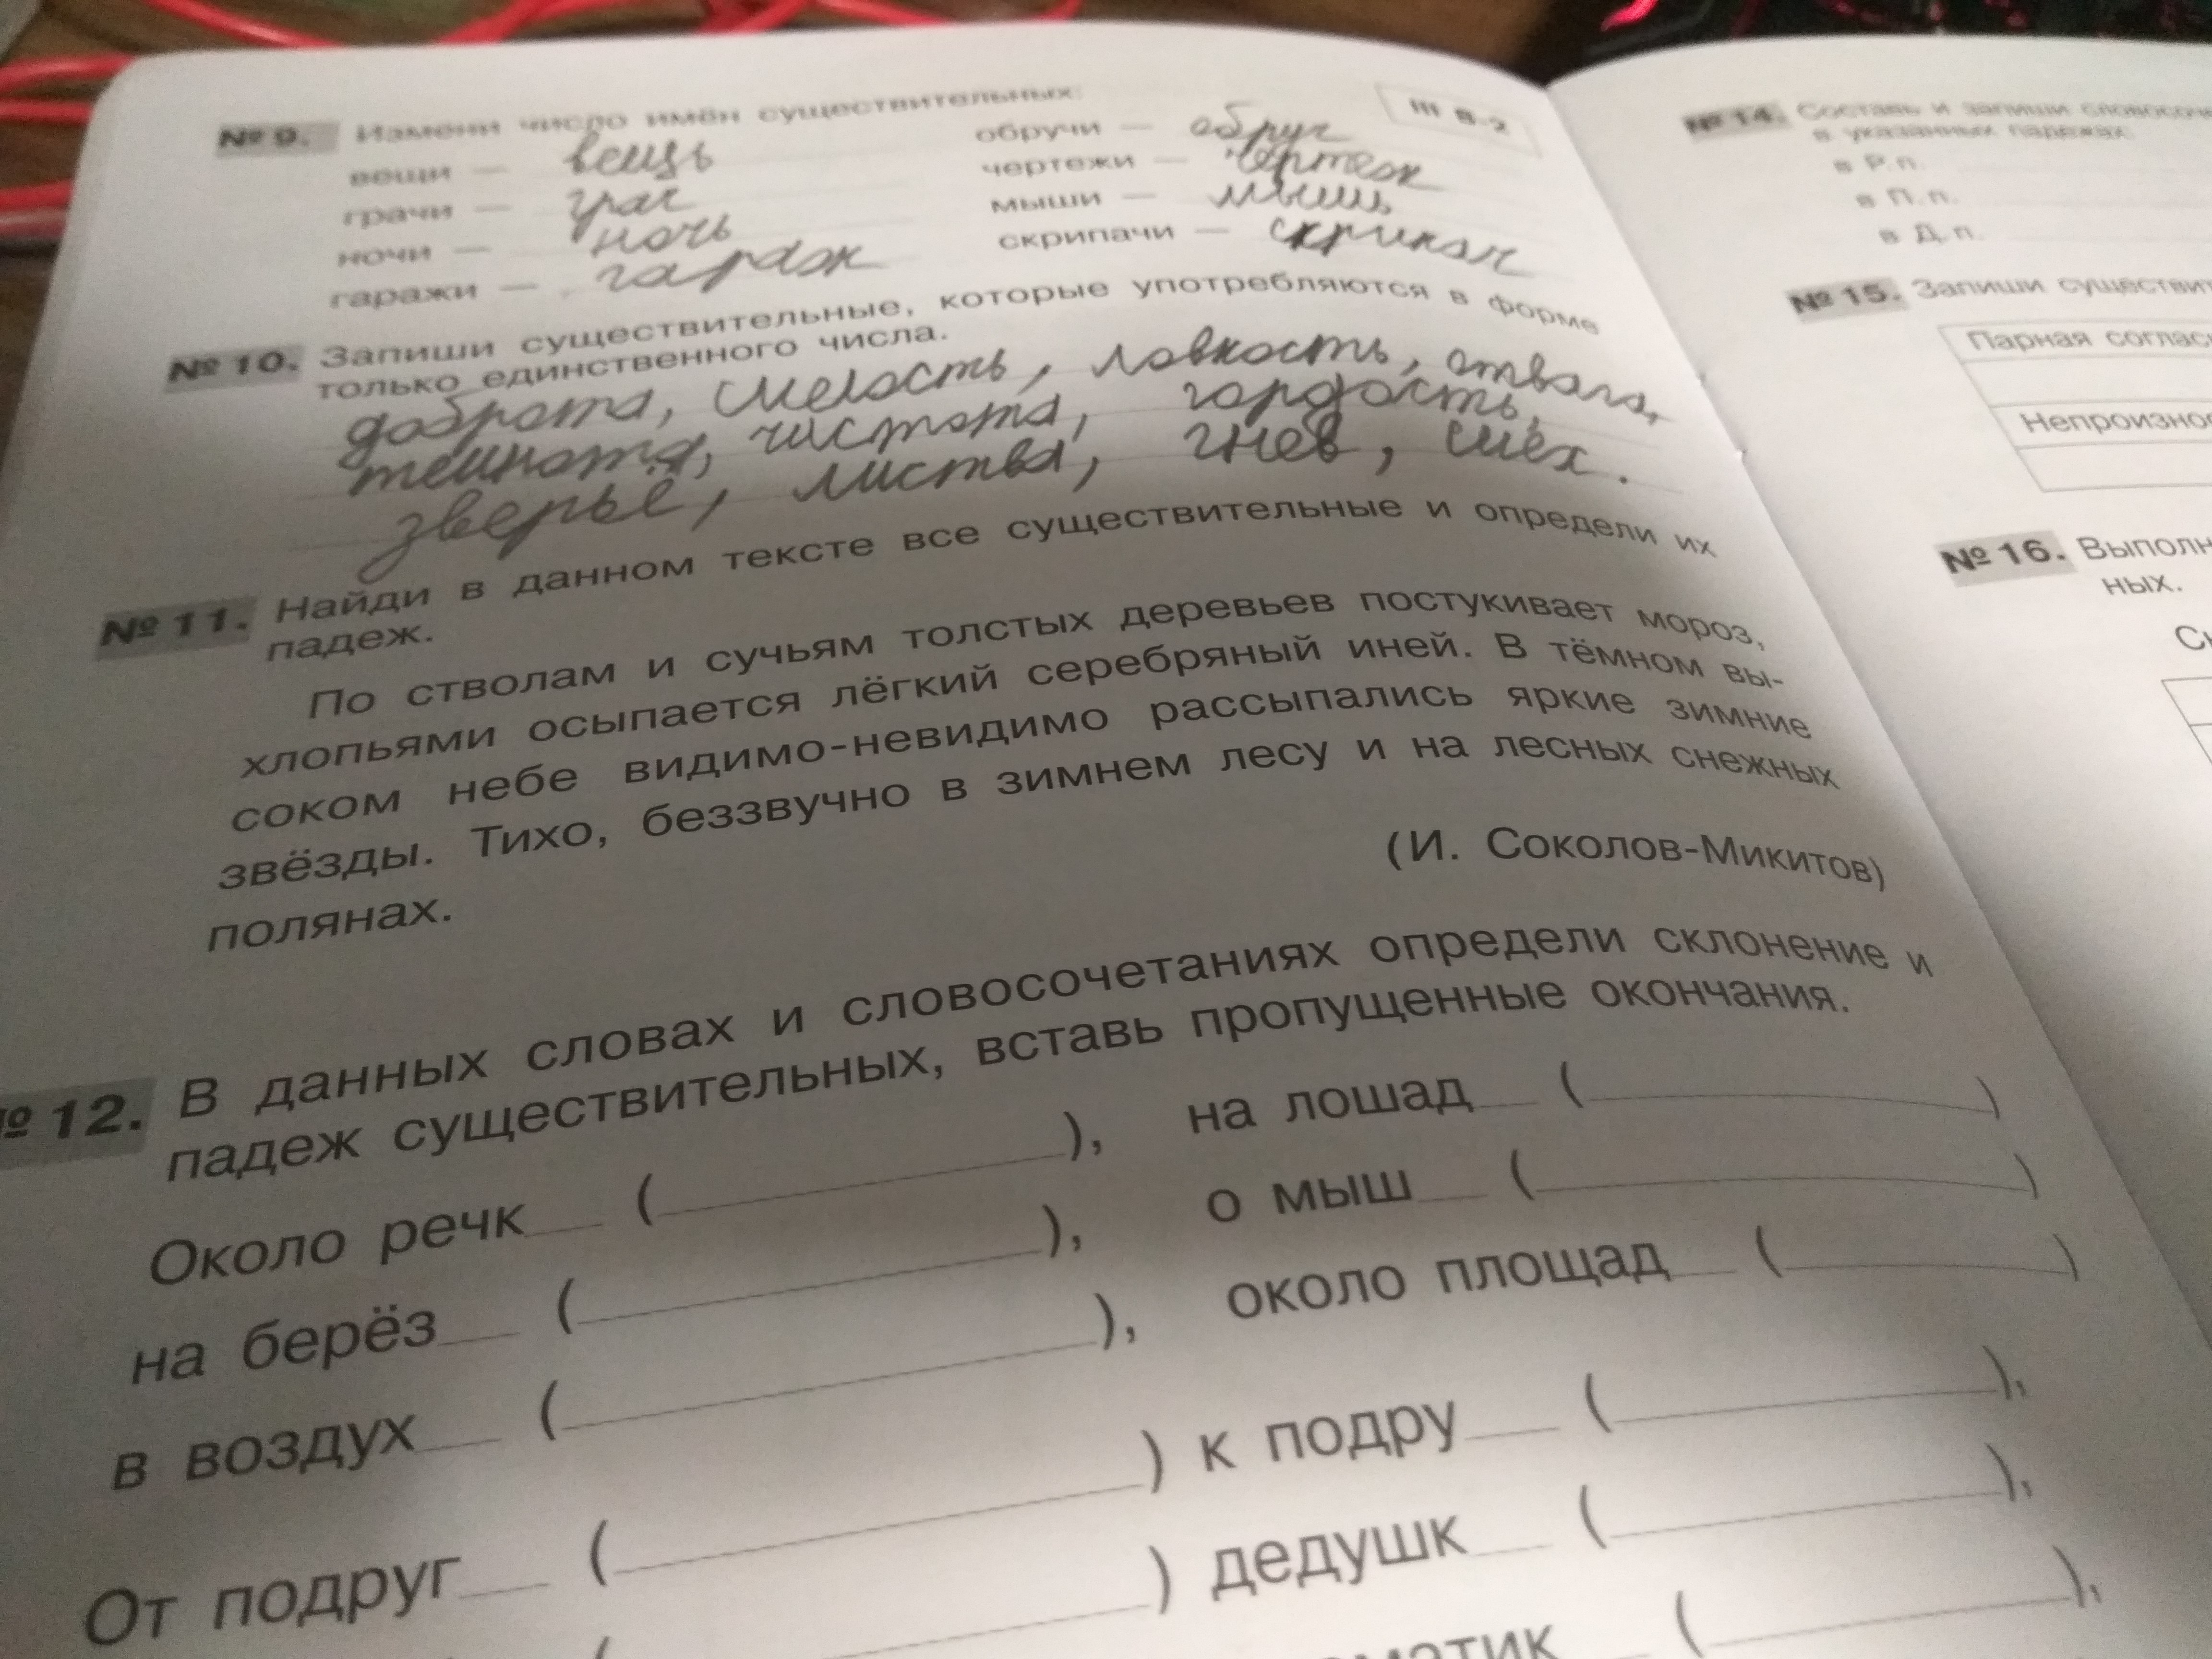 III В-2
№ 9. Измени число имён существительных:
вещи — вещь
грачи — грач
ночи — ночь
гаражи — гараж
обручи — обруч
чертежи — чертеж
мыши — мышь
скрипачи — скрипач
№ 10. Запиши существительные, которые употребляются в форме
только единственного числа.
доброта, смелость, ловкость, отвага,
темнота, чистота, гордость,
зверьё, листва, гнев, смех.
№ 11. Найди в данном тексте все существительные и определи их
падеж.
По стволам и сучьям толстых деревьев постукивает мороз,
хлопьями осыпается лёгкий серебряный иней. В тёмном вы-
соком небе видимо-невидимо рассыпались яркие зимние
звёзды. Тихо, беззвучно в зимнем лесу и на лесных снежных
полянах.
(И. Соколов-Микитов)
№ 12. В данных словах и словосочетаниях определи склонение и
падеж существительных, вставь пропущенные окончания.
Около речк___ (___), на лошад___ (___)
на берёз___ (___), о мыш___ (___)
в воздух___ (___), около площад___ (___)
От подруг___ (___) к подру___ (___),
(___) дедушк___ (___),
матик___ (___),
№ 14. Составь и запиши
в указанных падежах:
в Р. п.
в П. п.
в Д. п.
№ 15. Запиши
Парная
№ 16.
ных.